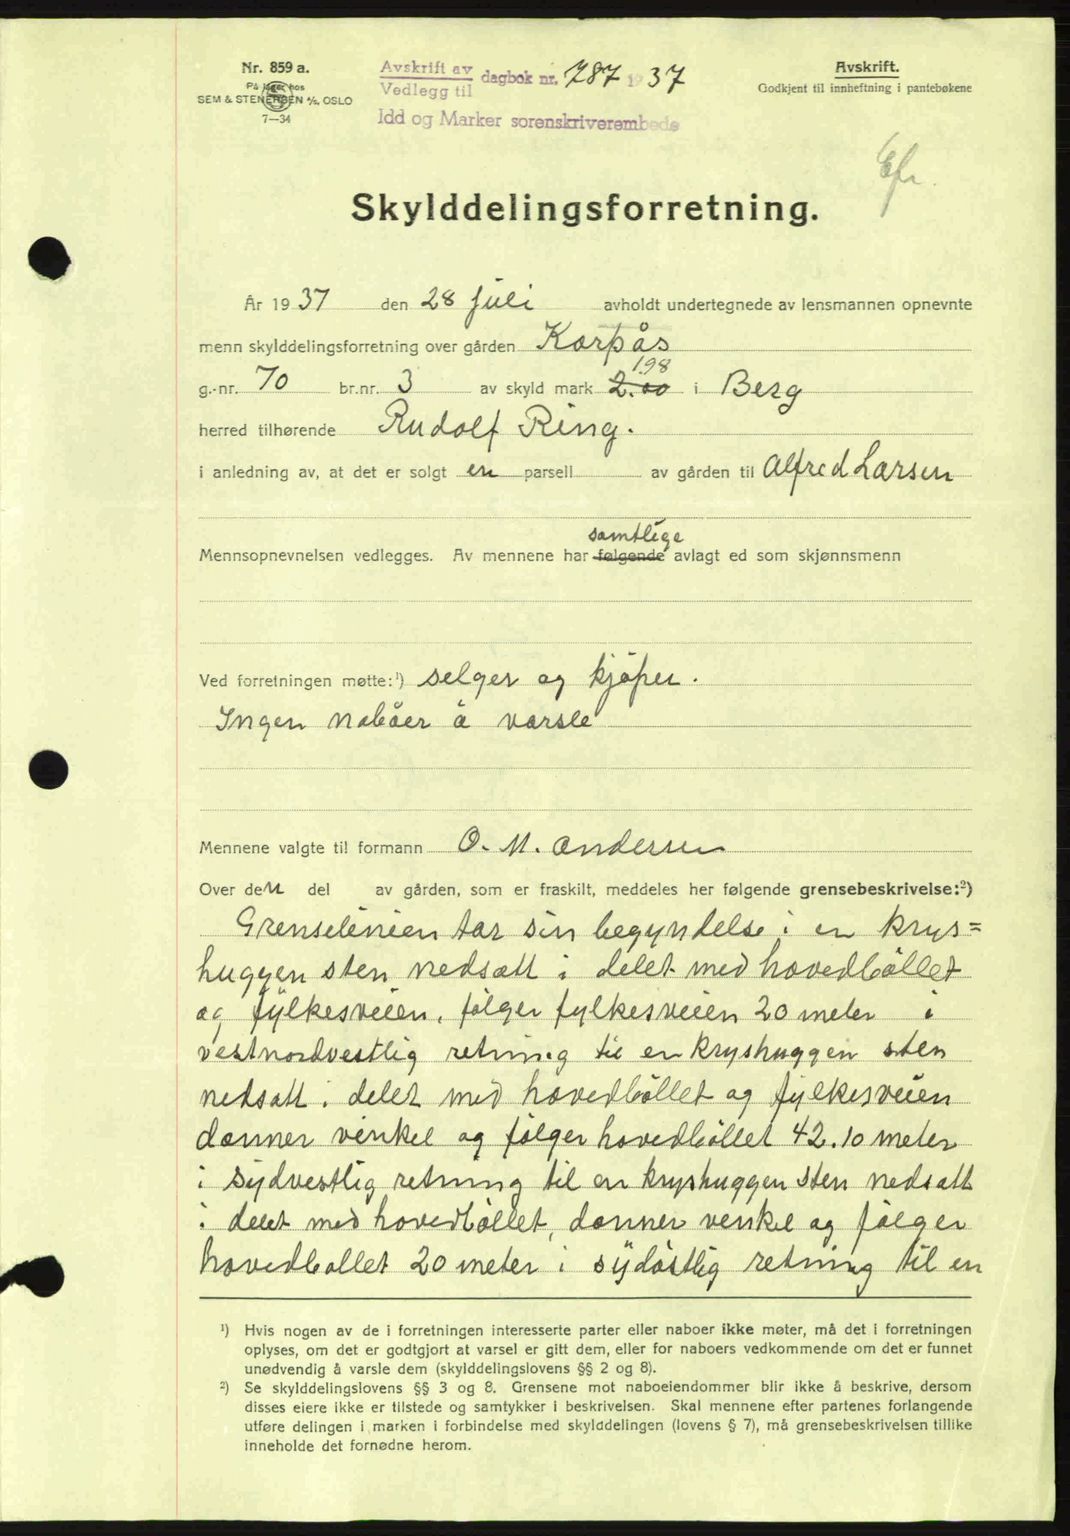 Nr. 859 a.
På lager hos
SEM & STENERSEN A/S, OSLO
7—34
Avskrift av
Vedlegg til
dagbok nr. 787 1937
Idd og Marker sorenskriverembede
Avskrift.
Godkjent til innheftning i pantebøkene
Skylddelingsforretning.
År 1937 den 28 juli avholdt undertegnede av lensmannen opnevnte
menn skylddelingsforretning over gården Korpås
1.98
g.-nr. 70 br.nr. 3 av skyld mark 2.00 i Berg
herred tilhørende Rudolf Ring.
i anledning av, at det er solgt en parsell av gården til Alfred Larsen
samtlige
Mennsopnevnelsen vedlegges. Av mennene har følgende avlagt ed som skjønnsmenn
Ved forretningen møtte:¹) selger og kjøper.
Ingen naboer å varsle
Mennene valgte til formann O. M. Andersen
Over den del av gården, som er fraskilt, meddeles her følgende grensebeskrivelse:²)
Grenselinien tar sin begyndelse i en krys=
huggen sten nedsatt i delet med hovedbøllet
og fylkesveien, følger fylkesveien 20 meter i
vestnordvestlig retning til en kryshuggen sten
nedsatt i delet med hovedbøllet og fylkesveien
danner vinkel og følger hovedbøllet 42.10 meter
i sydvestlig retning til en kryshuggen sten nedsatt
i delet med hovedbøllet, danner vinkel og følger
hovedbøllet 20 meter i sydøstlig retning til en
¹) Hvis nogen av de i forretningen interesserte parter eller naboer ikke møter, må det i forretningen
oplyses, om det er godtgjort at varsel er gitt dem, eller for naboers vedkommende om det er funnet
unødvendig å varsle dem (skylddelingslovens §§ 2 og 8).
²) Se skylddelingslovens §§ 3 og 8. Grensene mot naboeiendommer blir ikke å beskrive, dersom
disses eiere ikke er tilstede og samtykker i beskrivelsen. Skal mennene efter partenes forlangende
utføre delingen i marken i forbindelse med skylddelingen (lovens § 7), må grensebeskrivelsen tillike
inneholde det fornødne herom.